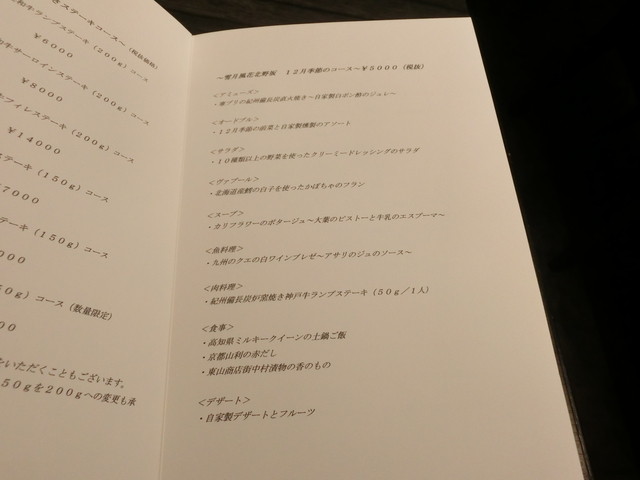 きステーキコース～（税抜価格）
和牛ランプステーキ（200g）コース
￥6000
牛サーロインステーキ（200g）コース
￥8000
フィレステーキ（200g）コース
￥14000
ステーキ（150g）コース
7000
ーキ（150g）コース
0g）コース（数量限定）
00
いただくこともございます。
50gを200gへの変更も承
～雪月風花北野坂　12月季節のコース～￥5000（税抜）
＜アミューズ＞
・寒ブリの紀州備長炭直火焼き～自家製白ポン酢のジュレ～
＜オードブル＞
・12月季節の前菜と自家製燻製のアソート
＜サラダ＞
・10種類以上の野菜を使ったクリーミードレッシングのサラダ
＜ヴァプール＞
・北海道産鱈の白子を使ったかぼちゃのフラン
＜スープ＞
・カリフラワーのポタージュ～大葉のピストーと牛乳のエスプーマ～
＜魚料理＞
・九州のクエの白ワインブレゼ～アサリのジュのソース～
＜肉料理＞
・紀州備長炭炉窯焼き神戸牛ランプステーキ（50g／1人）
＜食事＞
・高知県ミルキークイーンの土鍋ご飯
・京都山利の赤だし
・東山商店街中村漬物の香のもの
＜デザート＞
・自家製デザートとフルーツ